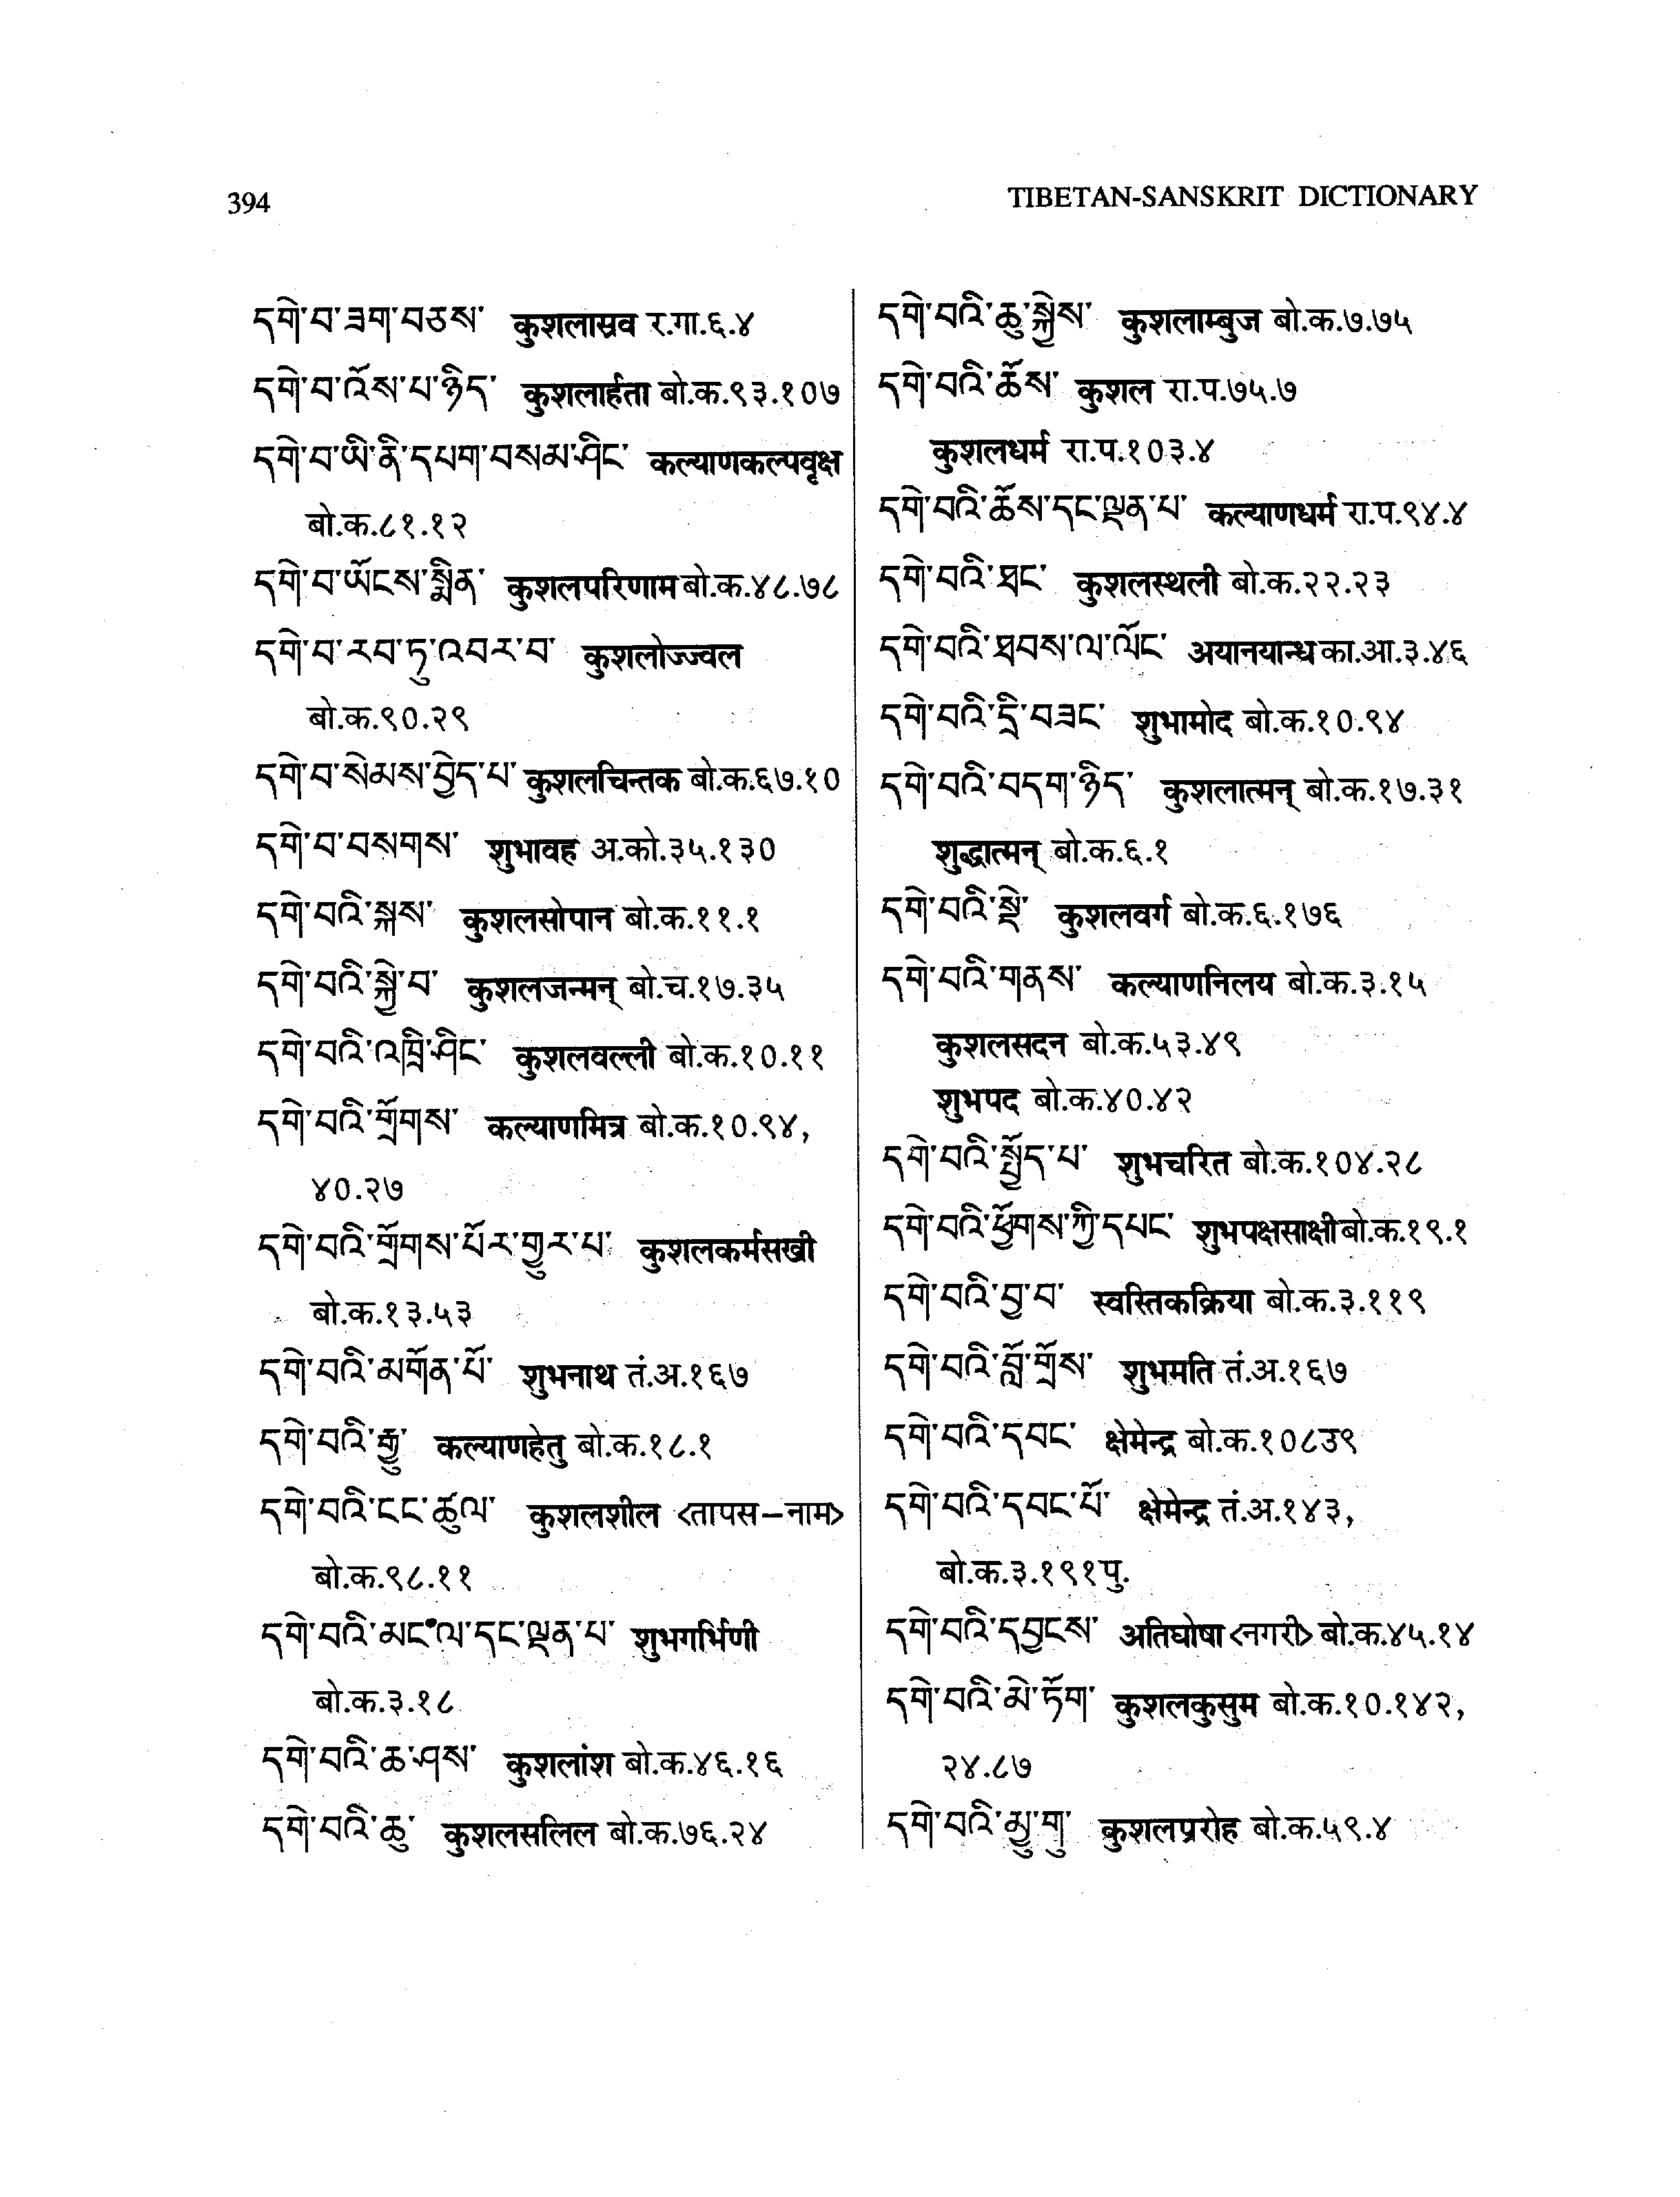 394
TIBETAN-SANSKRIT DICTIONARY
དགེ་བ་ཟག་བཅས་ कुशलास्रव र.गा.६.४
དགེ་བ་འོས་པ་ཉིད་ कुशलार्हता बो.क.९३.१०७
དགེ་བ་ཡི་ནི་དཔག་བསམ་ཤིང་ कल्याणकल्पवृक्ष
बो.क.८१.१२
དགེ་བ་ཡོངས་སྨིན་ कुशलपरिणाम बो.क.४८.७८
དགེ་བ་རབ་ཏུ་འབར་བ་ कुशलोज्ज्वल
बो.क.९०.२९
དགེ་བ་སེམས་བྱེད་པ་ कुशलचिन्तक बो.क.६७.१०
དགེ་བ་བསགས་ शुभावह अ.को.३५.१३०
དགེ་བའི་སྐས་ कुशलसोपान बो.क.११.१
དགེ་བའི་སྐྱེ་བ་ कुशलजन्मन् बो.च.१७.३५
དགེ་བའི་འཁྲི་ཤིང་ कुशलवल्ली बो.क.१०.११
དགེ་བའི་གྲོགས་ कल्याणमित्र बो.क.१०.९४,
४०.२७
དགེ་བའི་གྲོགས་པོར་གྱུར་པ་ कुशलकर्मसखी
बो.क.१३.५३
དགེ་བའི་མགོན་པོ་ शुभनाथ तं.अ.१६७
དགེ་བའི་རྒྱུ་ कल्याणहेतु बो.क.१८.१
དགེ་བའི་ངང་ཚུལ་ कुशलशील <तापस–नाम>
बो.क.९८.११
དགེ་བའི་མངལ་དང་ལྡན་པ་ शुभगर्भिणी
बो.क.३.१८
དགེ་བའི་ཆ་ཤས་ कुशलांश बो.क.४६.१६
དགེ་བའི་ཆུ་ कुशलसलिल बो.क.७६.२४
དགེ་བའི་ཆུ་སྐྱེས་ कुशलाम्बुज बो.क.७.७५
དགེ་བའི་ཆོས་ कुशल रा.प.७५.७
कुशलधर्म रा.प.१०३.४
དགེ་བའི་ཆོས་དང་ལྡན་པ་ कल्याणधर्म रा.प.९४.४
དགེ་བའི་ཐང་ कुशलस्थली बो.क.२२.२३
དགེ་བའི་ཐབས་ལ་ལོང་ अयानयान्ध का.आ.३.४६
དགེ་བའི་དྲི་བཟང་ शुभामोद बो.क.१०.९४
དགེ་བའི་བདག་ཉིད་ कुशलात्मन् बो.क.१७.३१
शुद्धात्मन् बो.क.६.१
དགེ་བའི་སྡེ་ कुशलवर्ग बो.क.६.१७६
དགེ་བའི་གནས་ कल्याणनिलय बो.क.३.१५
कुशलसदन बो.क.५३.४९
शुभपद बो.क.४०.४२
དགེ་བའི་སྤྱོད་པ་ शुभचरित बो.क.१०४.२८
དགེ་བའི་ཕྱོགས་ཀྱི་དཔང་ शुभपक्षसाक्षी बो.क.१९.१
དགེ་བའི་བྱ་བ་ स्वस्तिकक्रिया बो.क.३.११९
དགེ་བའི་བློ་གྲོས་ शुभमति तं.अ.१६७
དགེ་བའི་དབང་ क्षेमेन्द्र बो.क.१०८उ९
དགེ་བའི་དབང་པོ་ क्षेमेन्द्र तं.अ.१४३,
बो.क.३.१९१पु.
དགེ་བའི་དབྱངས་ अतिघोषा <नगरी> बो.क.४५.१४
དགེ་བའི་མེ་ཏོག་ कुशलकुसुम बो.क.१०.१४२,
२४.८७
དགེ་བའི་མྱུ་གུ་ कुशलप्ररोह बो.क.५९.४